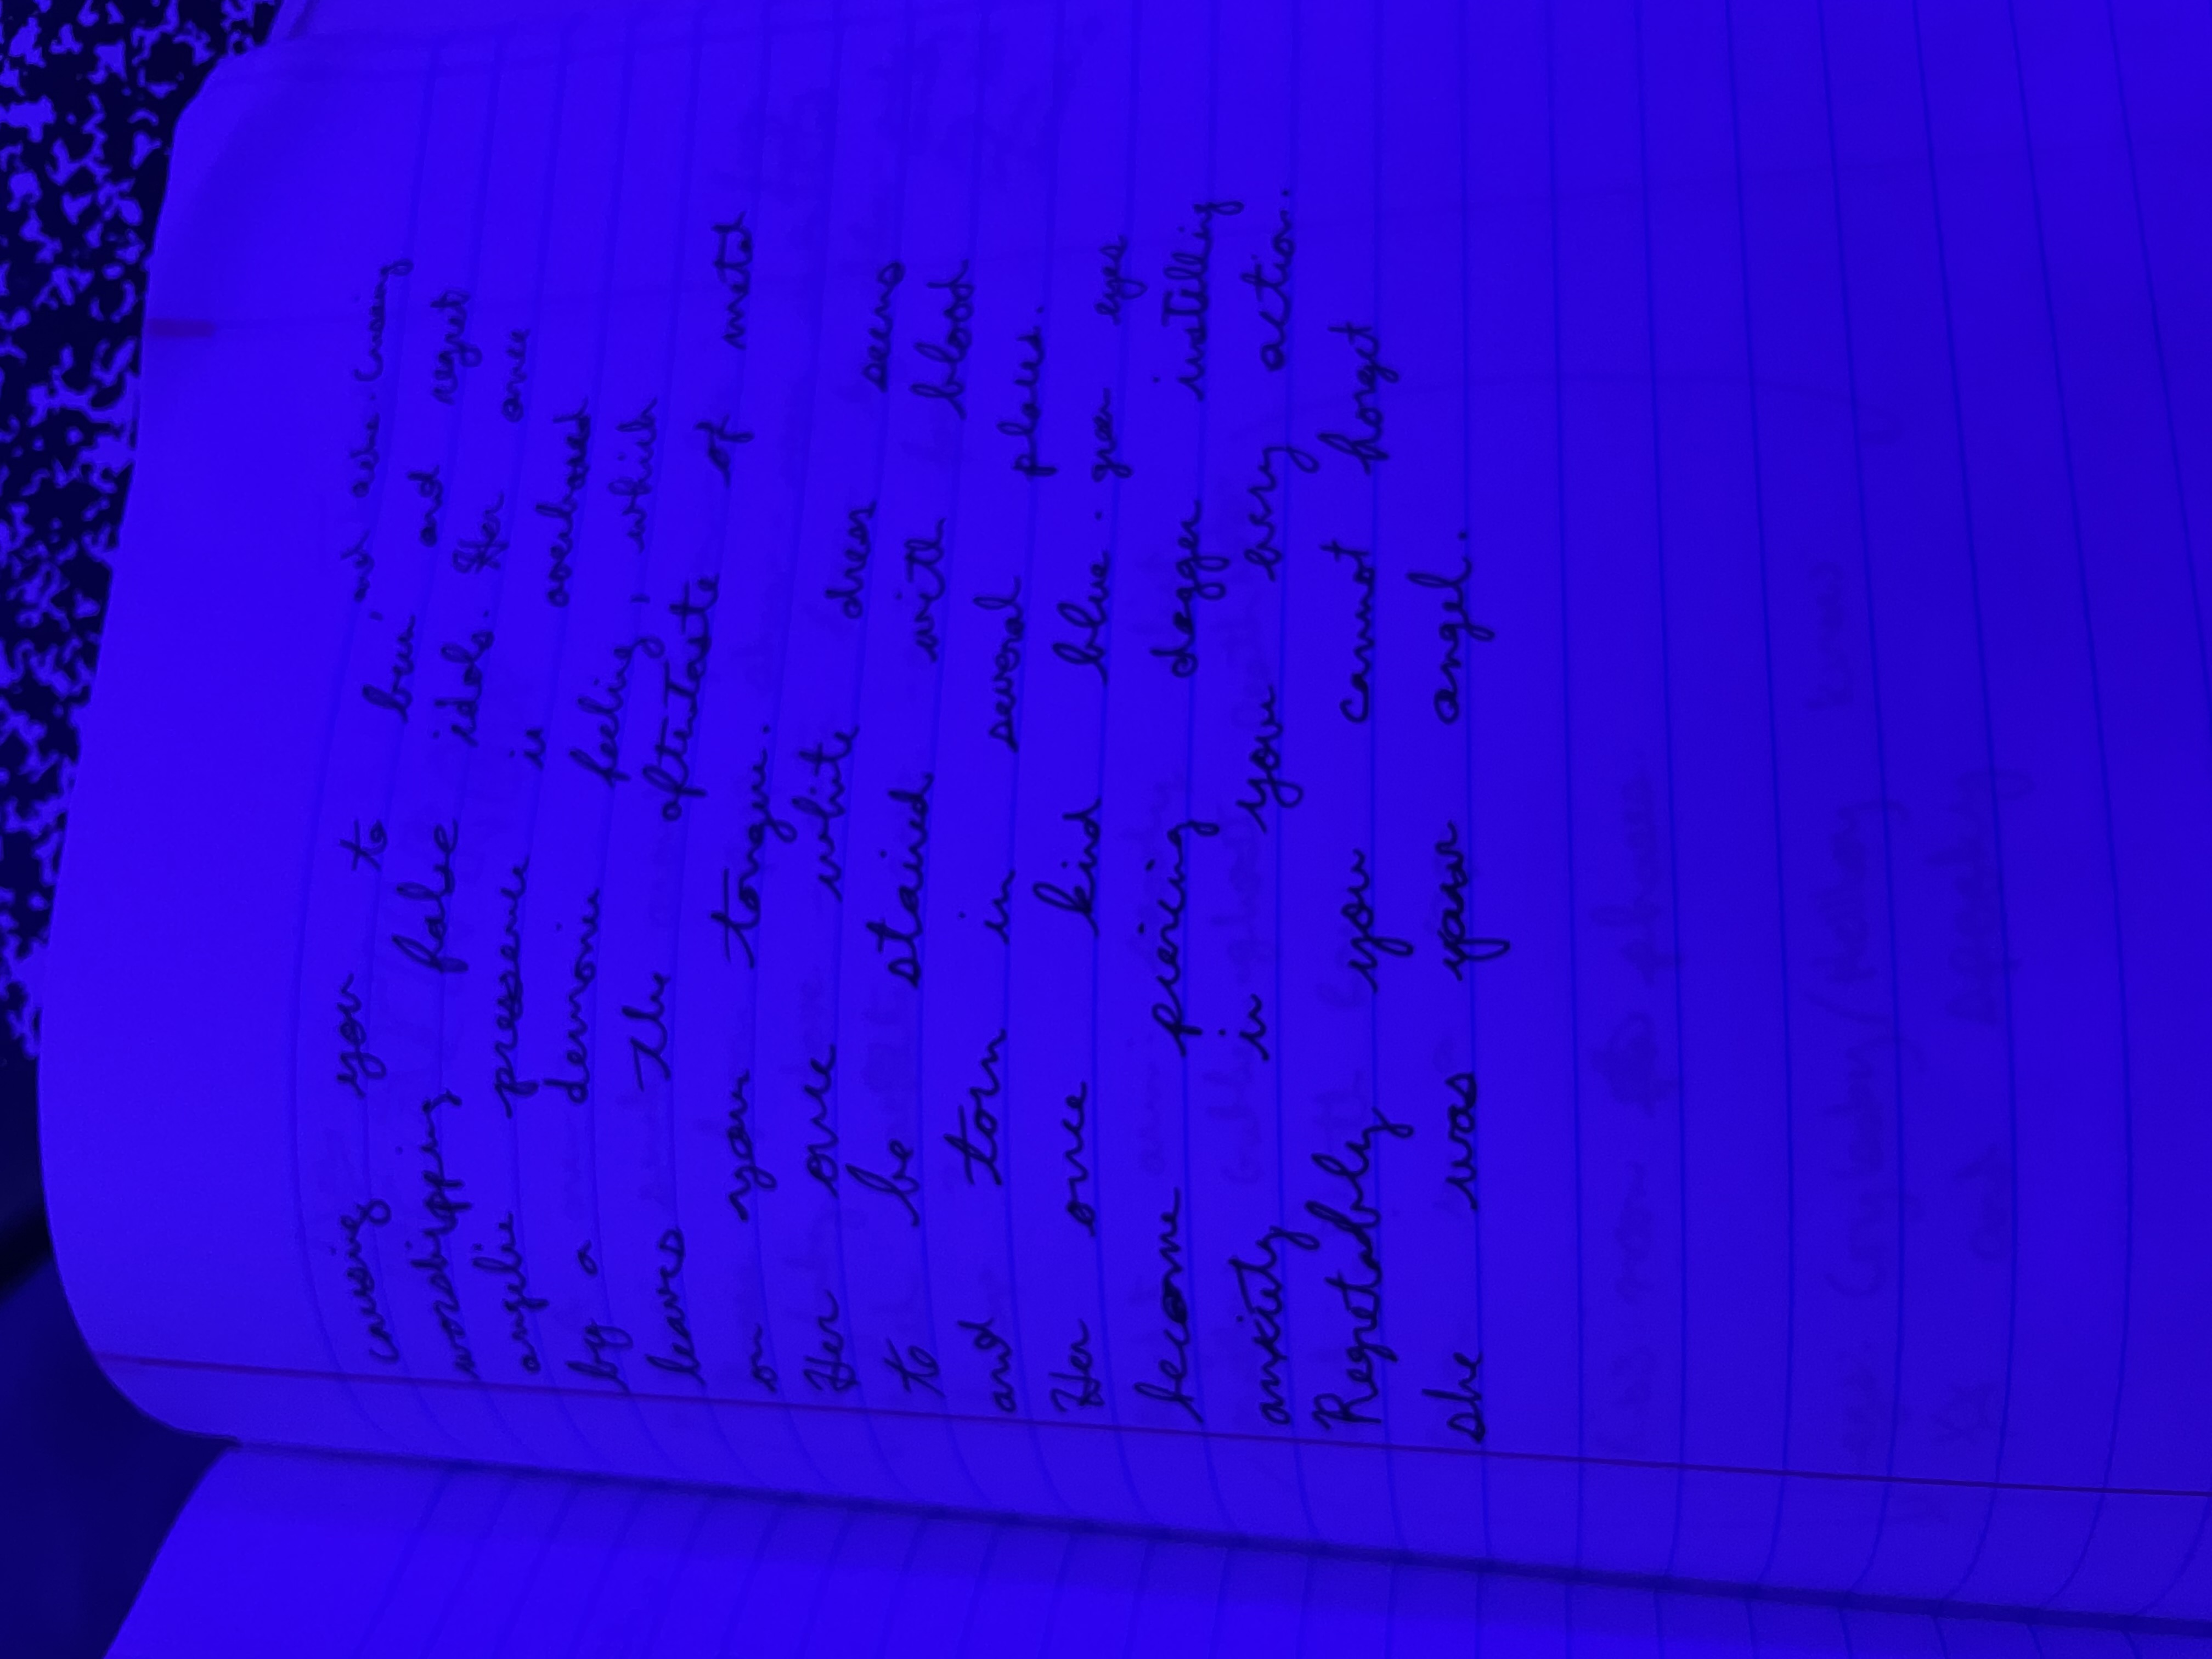 causing you to burn, and ache. Causing
and regret
worshipping false idols. Her once
angelic pressence is
by a demonic feeling, which
leaves the aftertaste of metal
on your tongue.
Her once white dress seems
to be stained with blood
and torn in several places.
Her once kind blue-green eyes
become piercing dagger instilling
anxiety in your every action.
Regretably you cannot forget
she was your angel.